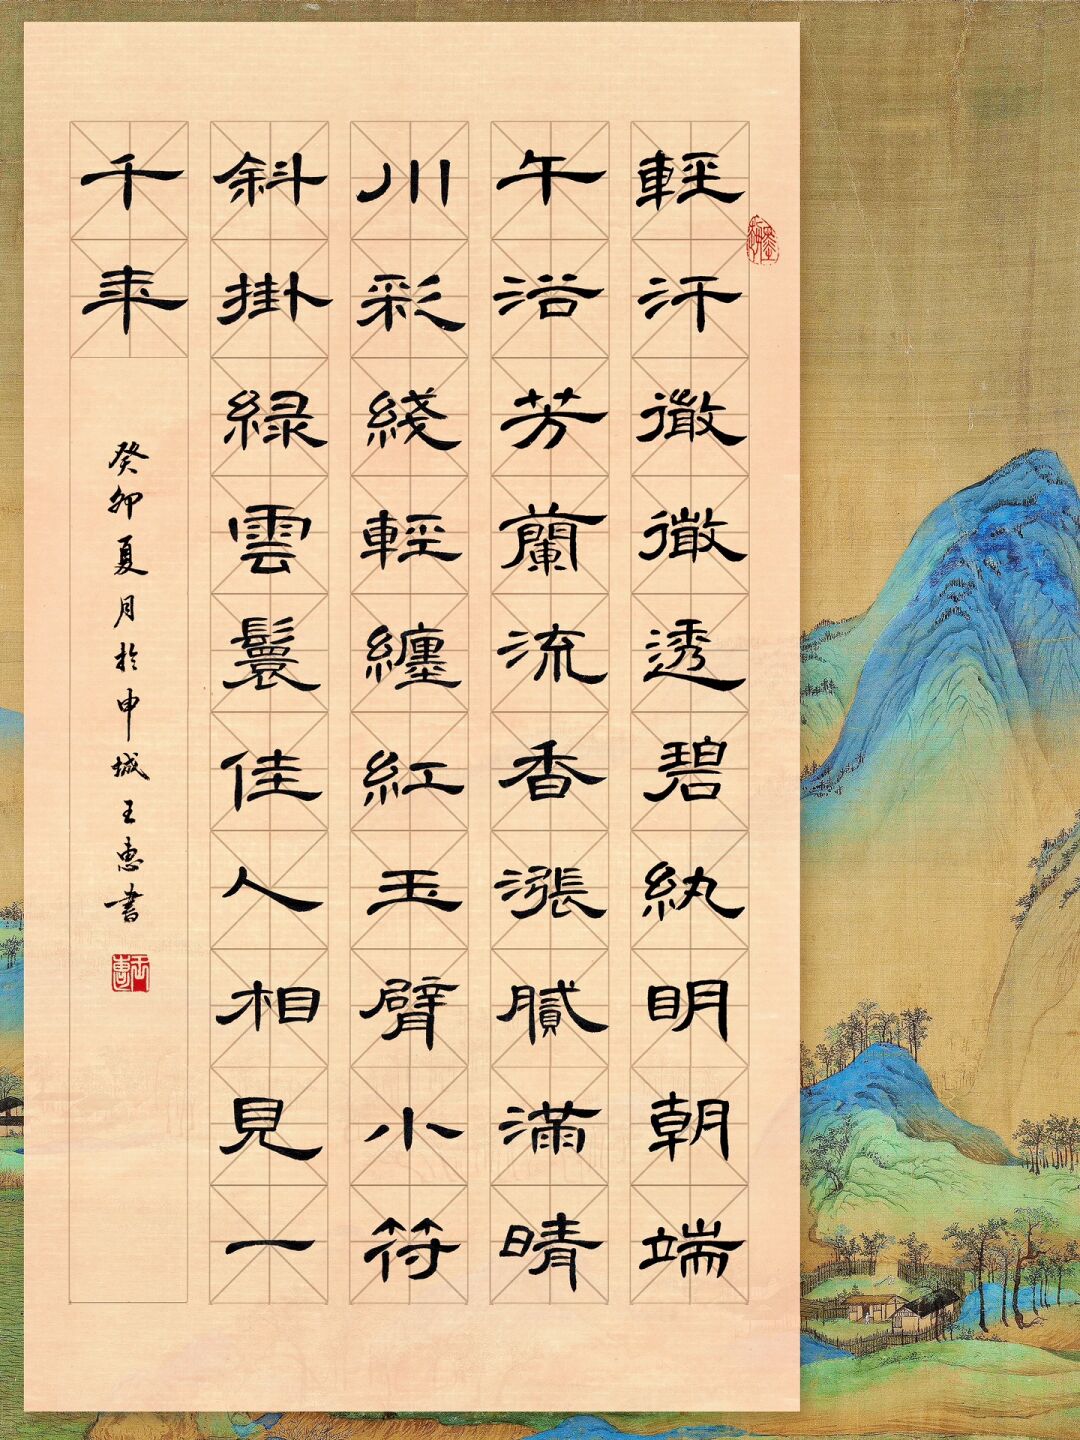 輕汗微微透碧紈明朝端
午浴芳蘭流香漲膩滿晴
川彩綫輕纏紅玉臂小符
斜掛緑雲鬟佳人相見一
千年
癸卯夏月於申城王惠書
王惠